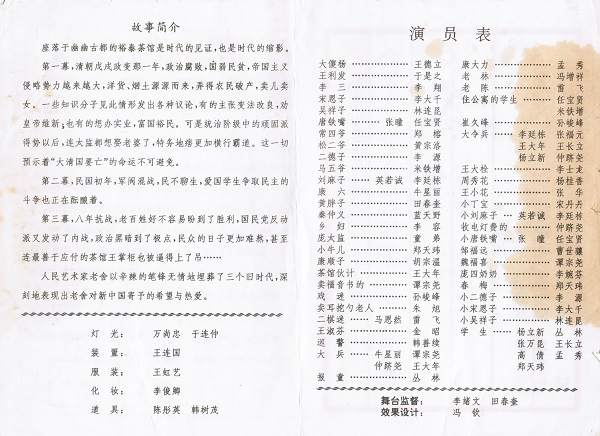 故事简介
座落于幽幽古都的裕泰茶馆是时代的见证，也是时代的缩影。
第一幕，清朝戊戌政变那一年，政治腐败，国弱民贫，帝国主义
侵略势力越来越大，洋货、烟土源源而来，弄得农民破产，卖儿卖
女。一些知识分子见此情形发出各种议论，有的主张变法改良，劝
皇帝维新；也有的想办实业，富国裕民。可是统治阶级中的顽固派
得势以后，连太监都想娶老婆了，特务地痞更加横行霸道。这一切
预示着“大清国要亡”的命运不可避免。
第二幕，民国初年，军阀混战，民不聊生，爱国学生争取民主的
斗争也正在酝酿着。
第三幕，八年抗战，老百姓好不容易盼到了胜利，国民党反动
派又发动了内战，政治黑暗到了极点，民众的日子更加难熬，甚至
连最善于应付的茶馆王掌柜也被逼得上了吊……
人民艺术家老舍以辛辣的笔锋无情地埋葬了三个旧时代，深
刻地表现出老舍对新中国寄予的希望与热爱。
灯 光： 万尚忠 于连仲
装 置： 王连国
服 装： 王虹艺
化 妆： 李俊卿
道 具： 陈彤英 韩树茂
演员表
大傻杨……王德立
王利发……于是之
李 三……李 翔
宋恩子……李大千
吴祥子……林连昆
唐铁嘴……张 瞳 任宝贤
常四爷……郑 榕
松二爷……黄宗洛
二德子……李 源
马五爷……米铁增
刘麻子……英若诚 李廷栋
康 六……牛星丽
黄胖子……田春奎
秦仲义……蓝天野
乡 妇……李 容
庞太监……童 弟
小牛儿……郑天玮
康顺子……胡宗温
茶馆伙计……王大年
卖福音书的……谭宗尧
戏 迷……孙骏峰
卖耳挖勺老人……朱 旭
二棋迷……马恩然 雷 飞
王淑芬……金 昭
巡 警……韩善续
大 兵……牛星丽 谭宗尧
仲跻尧 王大年
报 童……丛 林
康大力……孟 秀
老 林……冯增祥
老 陈……雷 飞
住公寓的学生……任宝贤
米铁增
崔久峰……孙峻峰
大令兵……李廷栋 张福元
王大年 王长立
杨立新 仲跻尧
王大栓……李士龙
周秀花……杨桂香
王小花……张 华
小丁宝……宋丹丹
小刘麻子……英若诚 李廷栋
收电灯费的……仲跻尧
小唐铁嘴……张 瞳 任宝贤
邹福远……曹世骧
魏福喜……谭宗尧
庞四奶奶……李婉芬
春 梅……郑天玮
小二德子……李 源
小宋恩子……李大千
小吴祥子……林连昆
学 生……杨立新 丛 林
张万昆 王长立
高 倩 孟 秀
郑天玮
舞台监督： 李绪文 田春奎
效果设计： 冯 钦